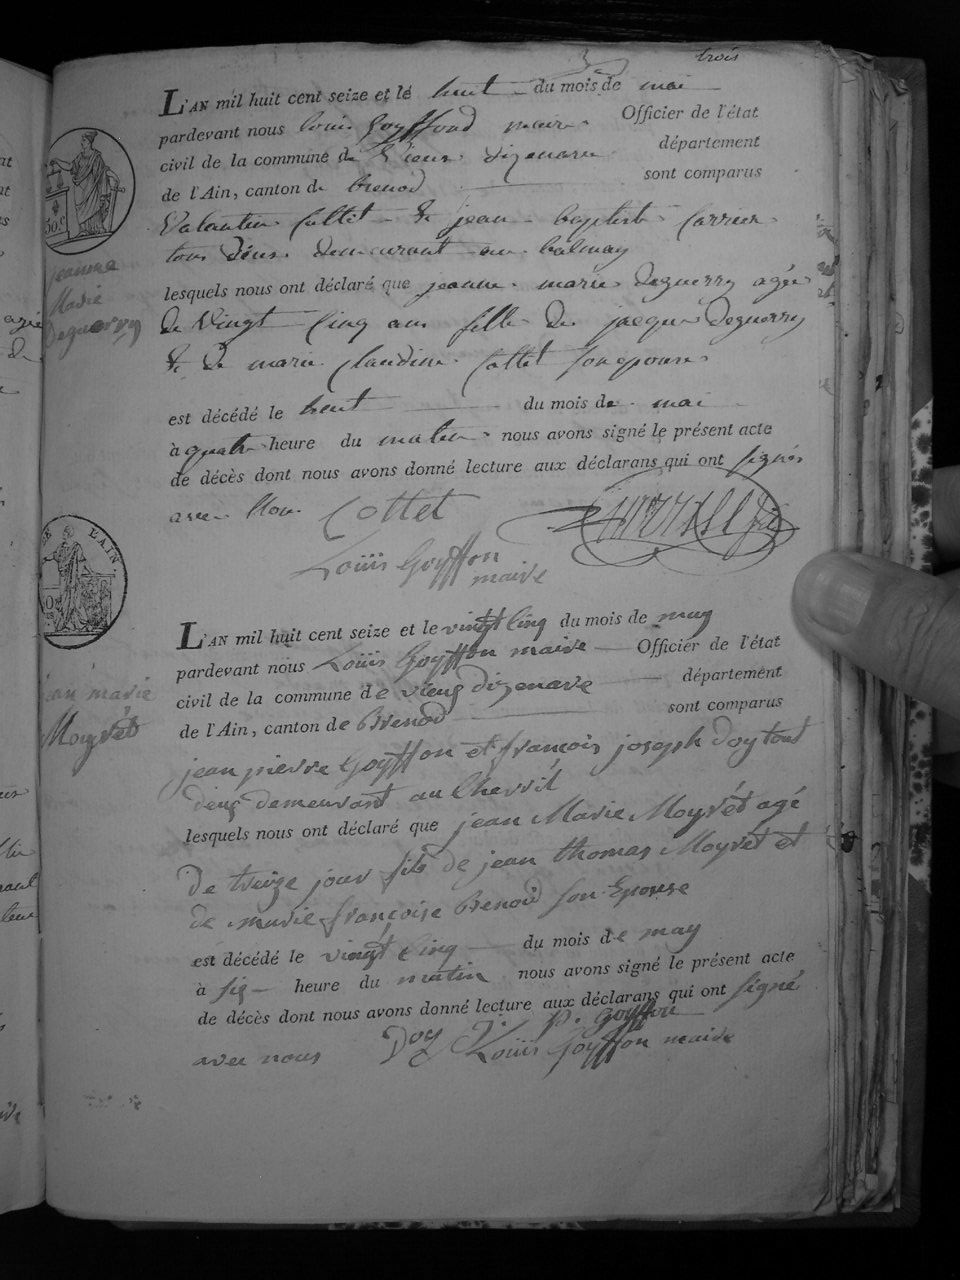 3 trois
L'AN mil huit cent seize et le huit du mois de mai
pardevant nous louis Goyffond maire Officier de l'état
civil de la commune de Vieux dizenave département
de l'Ain, canton de brenod sont comparus
Valantin Collet & jean baptiste Carrier
tous deux demeurant au balmay
lesquels nous ont déclaré que jeanne marie Deguerry agée
de Vingt Cinq ans fille de jacque Deguerry
& de marie Claudine Collet son epouse
est décédé le huit du mois de mai
à quatre heure du matin nous avons signé le présent acte
de décès dont nous avons donné lecture aux déclarans qui ont signés
avec Nous Collet
Louis Goyffon
maire
jeanne
Marie
Deguerry
50 c
L'AIN
L'AN mil huit cent seize et le vingt Cinq du mois de may
pardevant nous Louis Goyffon maire Officier de l'état
civil de la commune de vieux dizenave département
de l'Ain, canton de Brenod sont comparus
jean pierre Goyffon et françois joseph Doy tout
deux demeurant au Chevril
lesquels nous ont déclaré que jean Marie Moyrét agé
De treize jour fils de jean thomas Moyret et
de marie françoise Brenod son Epouse
est décédé le vingt Cinq du mois de may
à six heure du matin nous avons signé le présent acte
de décès dont nous avons donné lecture aux déclarans qui ont signé
avec nous Doy J. P. Goyffon
Louis Goyffon maire
jean marie
Moyrét